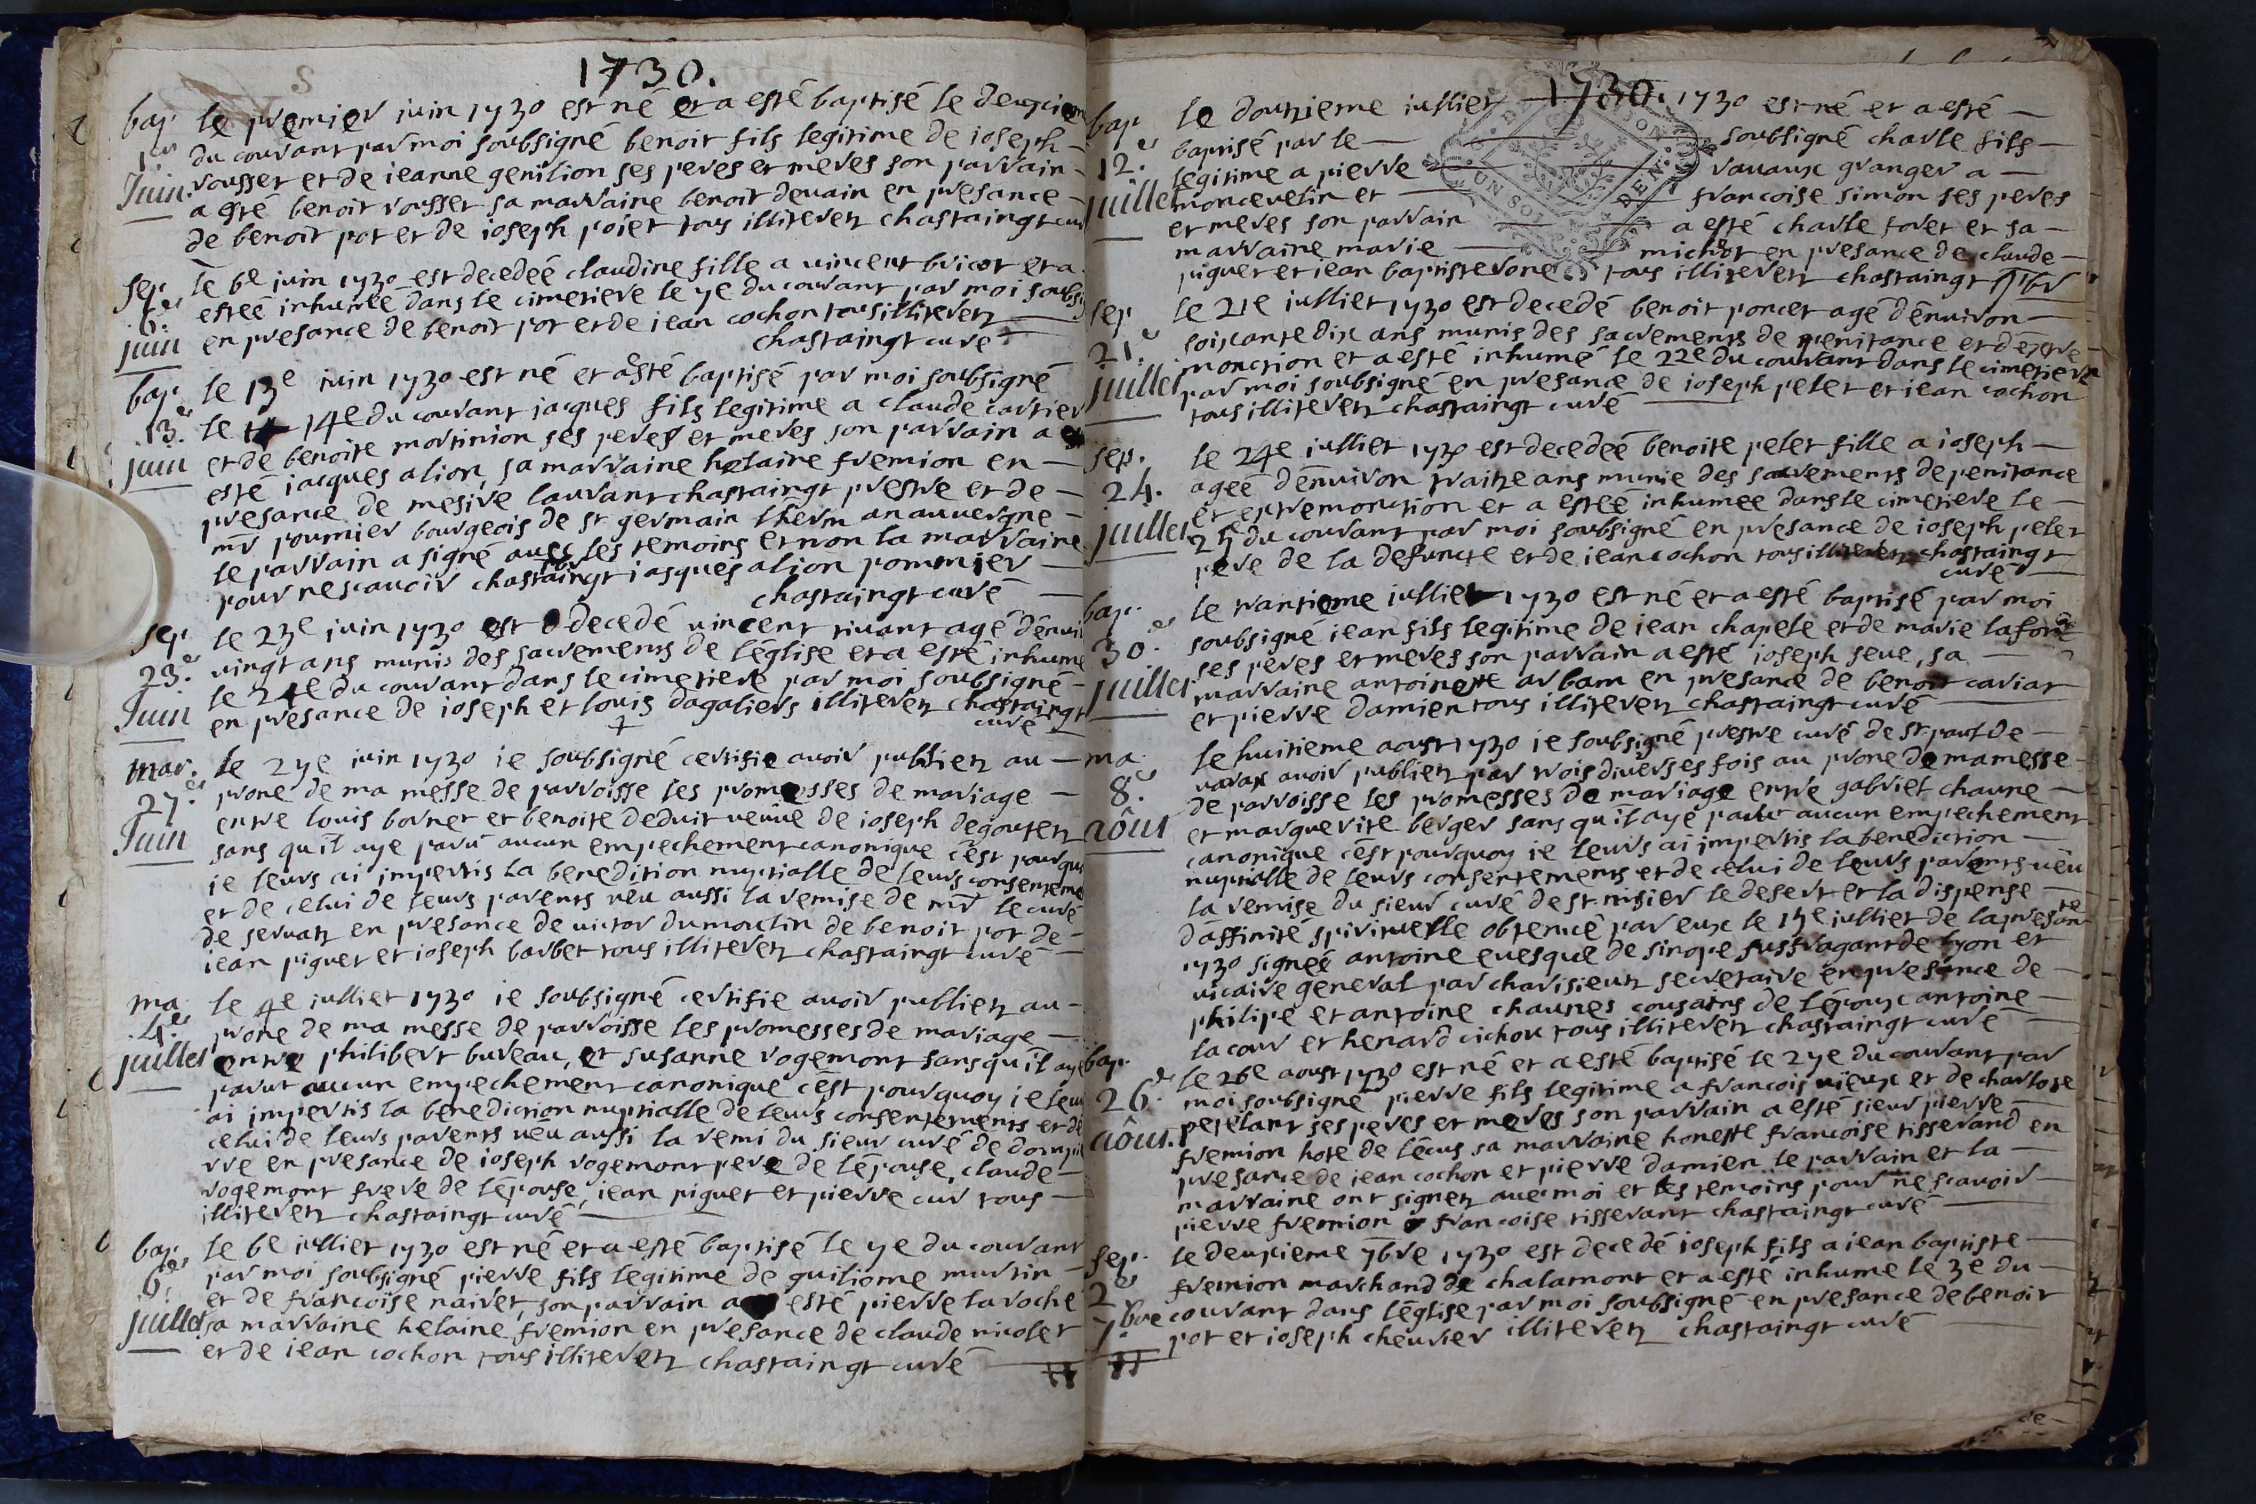 1730.
bap le premier juin 1730 est né et a esté baptisé le deuxciem
per du courant par moi soubsigné benoit fils legitime de ioseph
Juin. rousset et de ieanne genilion ses peres et meres son parrain
a esté benoit rousset sa marraine benoit deuain en presance
de benoit pot et de ioseph poiet tous illiteretz chastaingt cu
sep. le 6e juin 1730 est decedeé claudine fille a uincent bricot et a
6.e esteé inhumeé dans le cimetiere le ye du courant par moi soubsi
juin en presance de benoit pot et de iean cochon tous illiteretz
chastaingt curé
bap. le 13e juin 1730 est né et a esté baptisé par moi soubsigné
13.e le 14e du courant jacques fils legitime a claude cartier
juin et de benoite mortinion ses peres et meres son parrain a
esté jacques alion, sa marraine helaine fremion en
presance de mesire laurant chastaingt prestre et de
mr pournier bourgeois de st germain lherm an auuergne
le parrain a signé auec les temoins et non la marraine
pour ne scauoir chastaingt pbr jasques alion pommier
chastaingt curé
sep. le 23e juin 1730 est decedé uincent riuant agé d'enui
23.e uingt ans munis des sacrements de l'église et a esté inhume
Juin le 24e du courant dans le cimetiere par moi soubsigné
en presance de ioseph et louis dagaliers illiteretz chastaingt
curé
mar. le 2ye juin 1730 ie soubsigné certifie auoir publiez au
27.e prone de ma messe de parroisse les promesses de mariage
Juin entre louis bornet et benoite deduit ueuue de ioseph degoutetz
sans qu'il aye parû aucun empechement canonique c'est pourquoy
ie leurs ai impertis la benedition nuptialle de leurs consenteme
et de celui de leurs parents ueu aussi la remise de mr le curé
de seruatz en presance de uictor dumoulin de benoit pot de
iean piguet et ioseph barbet tous illiteretz chastaingt curé
ma le 4e jullier 1730 ie soubsigné certifie auoir publiez au
4.e prone de ma messe de parroisse les promesses de mariage
juillet entre philibert bureau, et susanne rogemont sans qu'il aye
parut aucun empechement canonique c'est pourquoy ie leur
ai impertis la benediction nuptialle de leurs consentements et de
celui de leurs parents ueu aussi la remi du sieur curé de dompie
rre en presance de ioseph rogemont pere de l'épouse, claude
rogemont frere de l'épouse, iean piguet et pierre cur tous
illiteretz chastaingt curé
bap. le 6e jullier 1730 est né et a esté baptisé le ye du courant
6.e par moi soubsigné pierre fils legitime de guiliome martin
juillet et de francoise naivet, son parrain a esté pierre laroche
sa marraine helaine fremion en presance de claude nicolet
et de iean cochon tous illiteretz chastaingt curé
1730.
bap. le doutzieme jullier 1730 est né et a esté
12.e baptisé par le soubsigné charle fils
juillet legitime a pierre rauaux granger a
moncevelin et francoise simon ses peres
et meres son parrain a esté charle foret et sa
marraine marie michot en presance de claude
piguet et iean baptiste rone tous illiteretz chastaingt pbr
sep. le 21e jullier 1730 est decedé benoit poncet agé d'enuiron
21.e soixante dix ans munis des sacrements de penitance et d'extre
juillet monction et a esté inhumé le 22e du courant dans le cimetiere
par moi soubsigné en presance de ioseph pelet et iean cochon
tous illiteretz chastaingt curé
sep. le 24e jullier 1730 est decedeé benoite pelet fille a ioseph
24. ageé d'enuiron traitze ans munie des sacrements de penitance
juillet et extremonction et a esteé inhumee dans le cimetiere le
25 du courant par moi soubsigné en presance de ioseph pelet
pere de la defuncte et de iean cochon tous illiteretz chastaingt
curé
bap. le trantieme jullier 1730 est né et a esté baptisé par moi
30.e soubsigné iean fils legitime de iean chapele et de marie lafor
juillet ses peres et meres son parrain a esté ioseph seue, sa
marraine antoinette arbam en presance de benoit cariat
et pierre damien tous illiteretz chastaingt curé
ma. le huitieme aoust 1730 ie soubsigné prestre curé de st paul de
8.e uarax auoir publiez par trois diuerses fois au prone de ma messe
aôut de parroisse les promesses de mariage entre gabriel chaune
et marguerite berger sans qu'il aye parut aucun empechement
canonique c'est pourquoy ie leurs ai impertis la benediction
nuptialle de leurs consentements et de celui de leurs parents ueu
la remise du sieur curé de st nisier le desert et la dispense
d'affinité spirituelle obtenue par eux le 15e jullier de la presante
1730 signeé antoine euesque de sinope suffragant de lyon et
uicaire general par charisieux secretaire en presance de
philipe et antoine chaunes cousains de l'époux antoine
la cour et henard cichou tous illiteretz chastaingt curé
bap. le 26e aoust 1730 est né et a esté baptisé le 2ye du courant par
26.e moi soubsigné pierre fils legitime a francois uieux et de charlote
aôut. petetant ses peres et meres son parrain a esté sieur pierre
fremion hote de l'écus sa marraine honeste francoise tisserand en
presance de iean cochon et pierre damien le parrain et la
marraine ont signetz auec moi et les temoins pour ne scauoir
pierre fremion francoise tisserant chastaingt curé
sep. le deuxieme 7bre 1730 est decedé ioseph fils a iean baptiste
2.e fremion marchand de chalamont et a esté inhume le 3e du
7bre courant dans l'église par moi soubsigné en presance de benoit
pot et ioseph cheurier illiteretz chastaingt curé